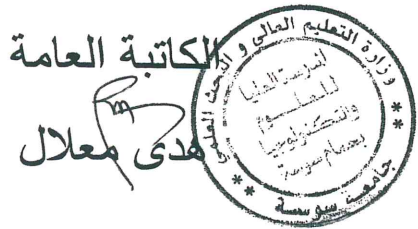 الكاتبة العامة
هدى معلال
وزارة التعليم العالي و البحث العلمي
المدرسة العليا
للعلــــوم
والتكنولوجيا
بحمام سوسة
** جامعة سوسة **